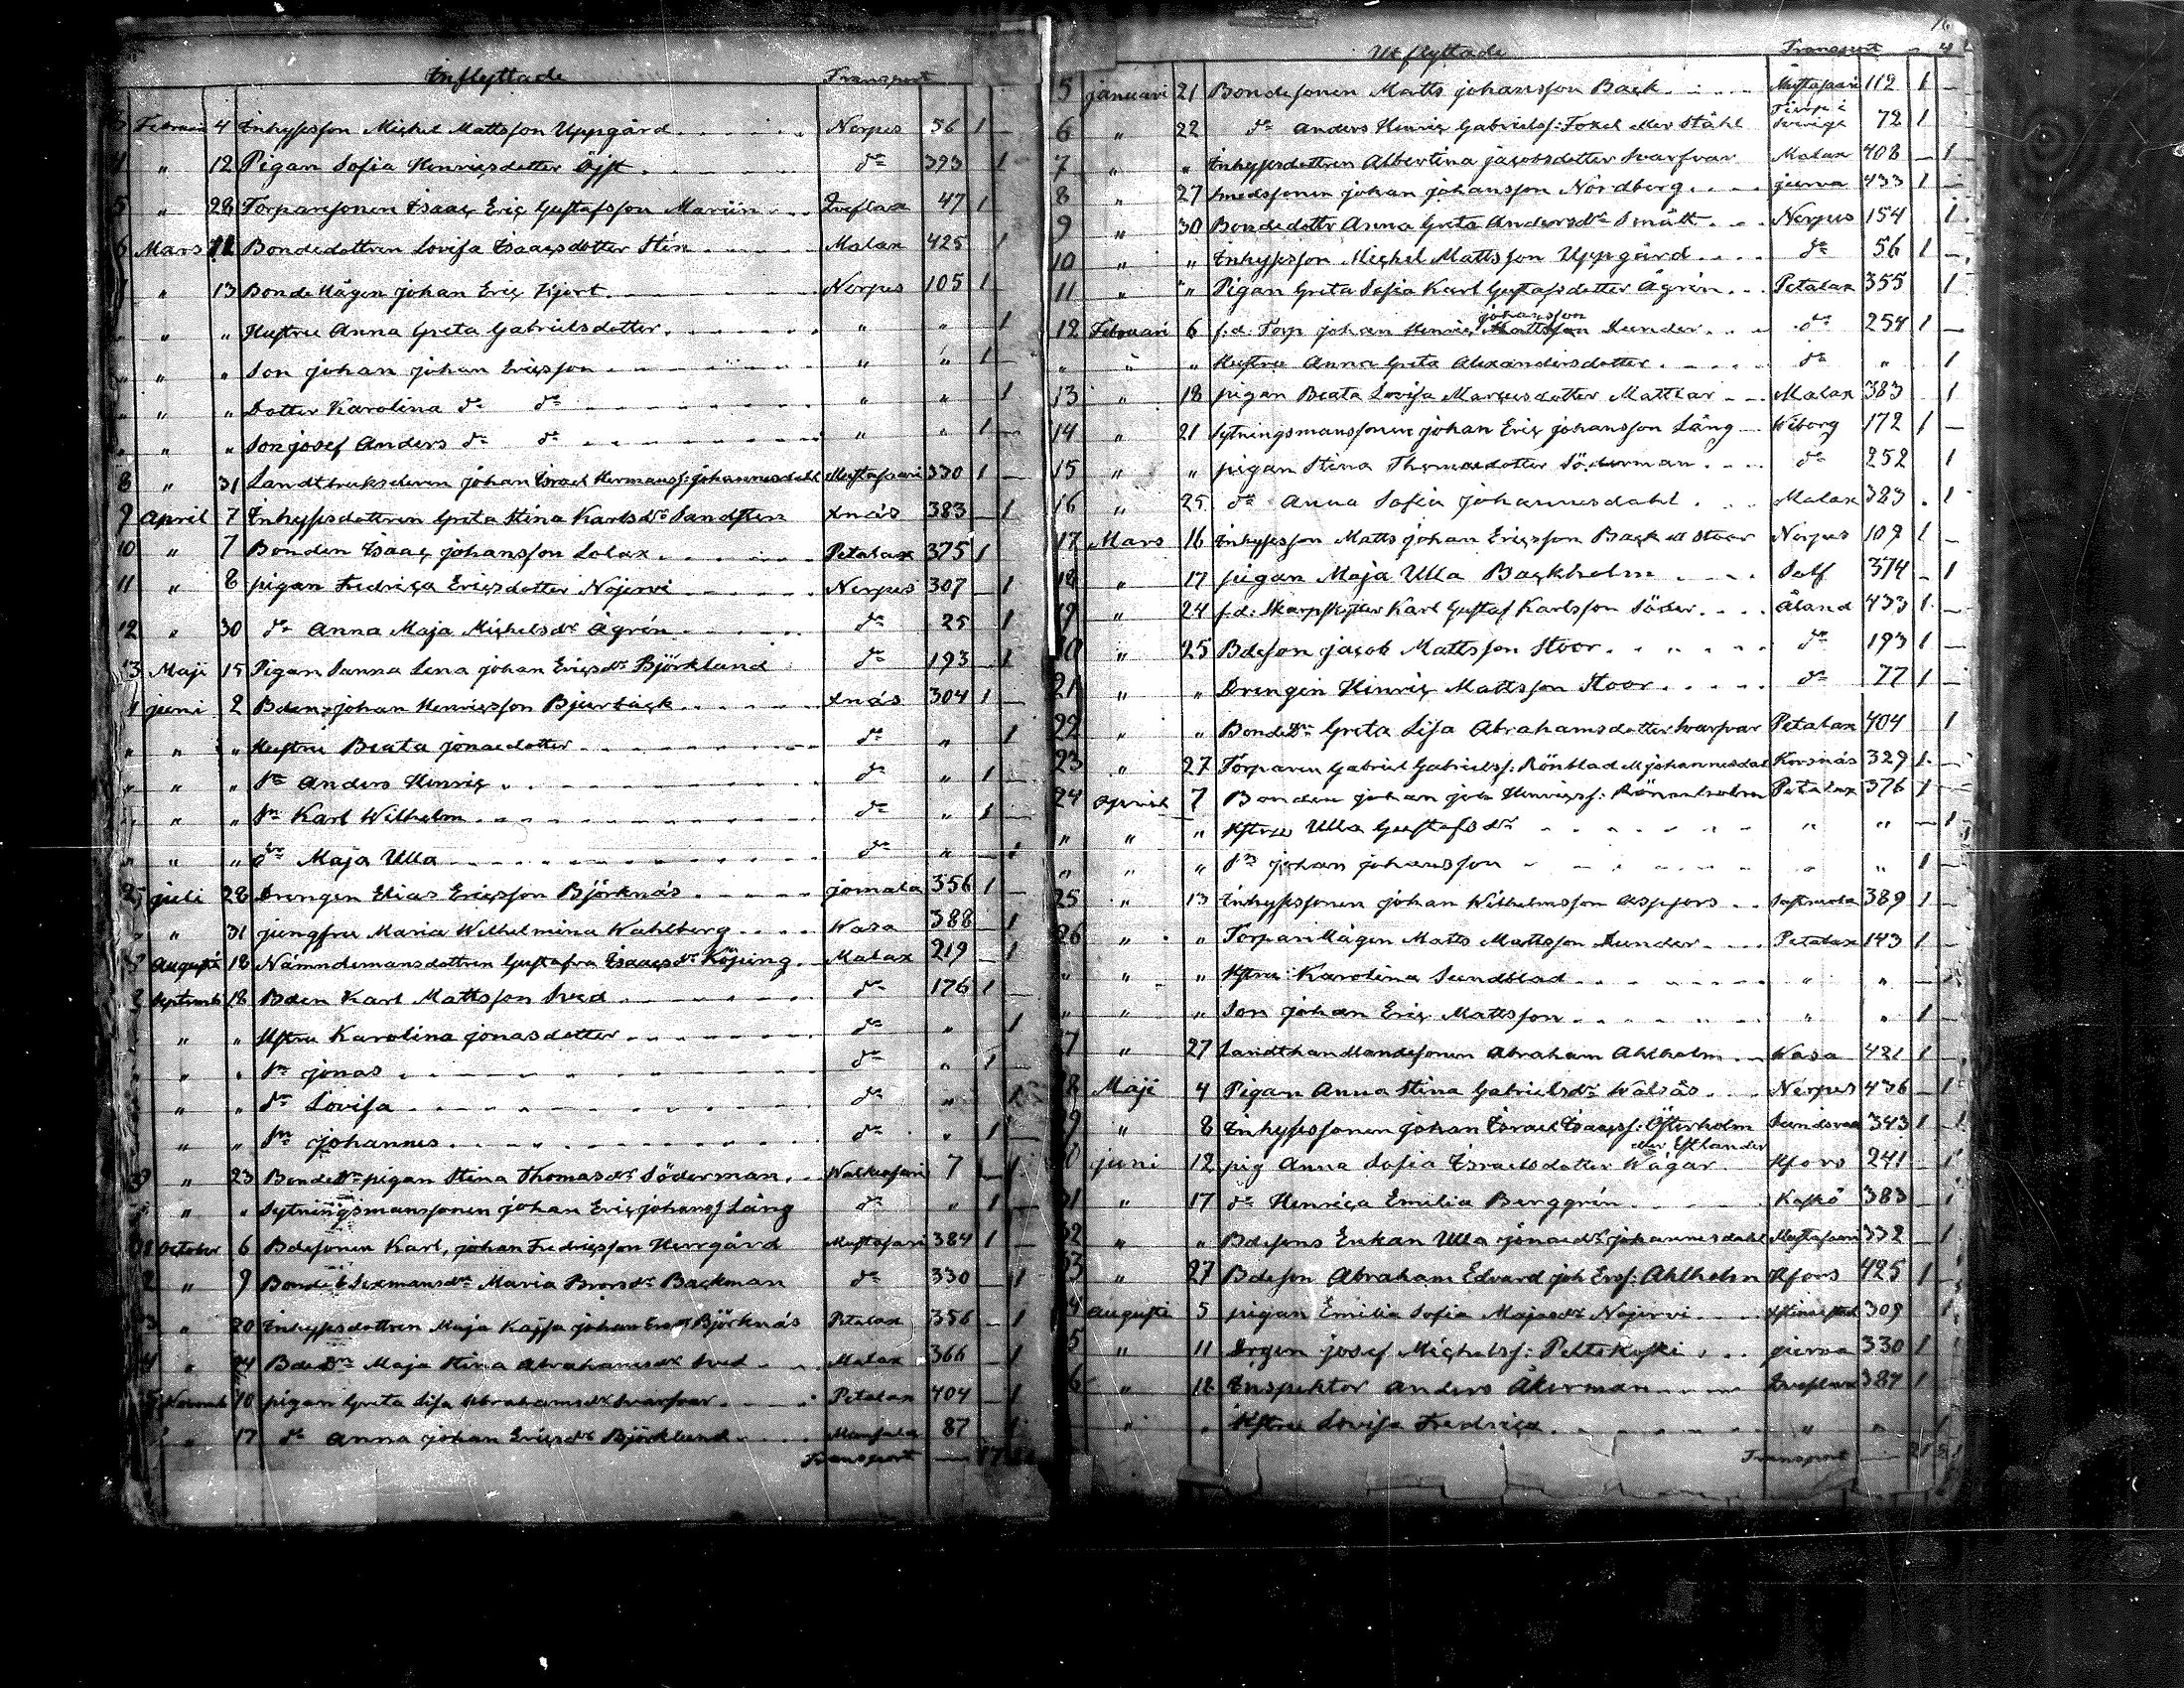 Inflyttade Transport
3 Februari 4 Inhysesson Michel Mattsson Uppgård Nerpes 56 1 —
4 " 12 Pigan Sofia Henricsdotter Öjst do 393 1
5 " 28 Torparesonen Isaac Eric Gustafsson Mariin Qveflax 47 1
6 Mars 12 Bondedottren Lovisa Isaacsdotter Stén Malax 425 1
" 13 Bonde Mågen Johan Eric Hjort Nerpes 105 1
" " " Hustru Anna Greta Gabrielsdotter " " 1
" " " Son Johan Johan Ericsson " " 1 —
" " " Dotter Karolina do do " " 1
" " " Son Josef Anders do do " " 1 —
8 " 31 Landtbrukseleven Johan Israel Hermanss: Johannesdahl Mustasaari 330 1 —
9 April 7 Inhysesdottren Greta Stina Karlsdr Sandsten xnäs 383 — 1
10 " 7 Bonden Isaac Johansson Solax Petalax 375 1
11 " 8 pigan Fredrica Ericsdotter Nojervi Nerpes 307 — 1
12 " 30 do Anna Maja Michelsdr Ågrén do 25 1
13 Maji 15 Pigan Sanna Lena Johan Ericsdr Björklund do 193 — 1
juni 2 Bden Johan Henricsson Bjurbäck xnäs 304 1 —
" " " Hustru Beata Jonaedotter do " 1
" " " Sn Anders Henric do " 1 —
" " " Sn Karl Wilhelm do " 1 —
" " " dr Maja Ulla do " — 1
juli 28 Drengen Elias Ericsson Björknäs jomala 356 1 —
" 31 jungfru Maria Wilhelmina Wahlberg Wasa 388 — 1
Augusti 18 Nämndemansdottren Gustafva Isaacsdr Köping Malax 219 — 1
Septemb 18 Bden Karl Mattsson Sved do 176 1 —
" " Hstru Karolina Jonasdotter do " 1
" " Sn Jonas do " 1 —
" " dr Lovisa do " 1
" " Sn Johannes do " 1 —
" 23 Bondedr pigan Stina Thomasdr Söderman Walkeasari 7 — 1
" " Sytningsmanssonen Johan Eric Johanss Lång do " 1 —
October 6 Bdesonen Karl, Johan Fredricsson Herrgård Mustasari 384 1 —
2 " 9 Bonde & Sexmansdr Maria Brorsdr Backman do 330 — 1
3 " 20 Inhysesdottren Maja Kajsa Johan Ersdr Björknäs Petalax 356 — 1
4 " 24 Bdedr Maja Stina Abrahamsdr Sved Malax 366 — 1
Novemb 10 pigan Greta Lisa Abrahamsdr Svarfvar Petalax 404 — 1
" 17 do Anna Johan Ericsdr Björklund 87 1
Transport — 17
16
Utflyttade Transport 4
5 januari 21 Bondesonen Matts Johansson Back Mustasaari 112 1 —
6 " 22 do Anders Henric Gabrielss: Foxel eller Ståhl Sverige 72 1
7 " " Inhysesdottren Albertina Jacobsdotter Svarfvar Malax 408 — 1
8 " 27 Smedssonen Johan Johansson Nordberg jurva 433 1 —
9 " 30 Bondedottr Anna Greta Andersdr Smått Nerpes 154 1
10 " " Inhysesson Michel Mattsson Uppgård do 56 1 —
11 " " Pigan Greta Sofia Karl Gustafsdotter Ågrén Petalax 355 1
johansson
12 Februari 6 f.d. Torp Johan Henric Mattsson Dunder do 254 1 —
" " " Hustru Anna Greta Alexandersdotter do " 1
13 " 18 pigan Beata Lovisa Marcusdotter Mattlar Malax 383 1
14 " 21 Sytningsmanssonen Johan Eric Johansson Lång Wiborg 172 1 —
15 " " pigan Stina Thomasdotter Söderman do 252 1
16 " 25 do Anna Sofia Johannesdahl Malax 383 1
17 Mars 16 Inhysesson Matts Johan Ericsson Back ell Stoor Nerpes 109 1 —
18 " 17 pigan Maja Ulla Backholm Solf 374 — 1
19 " 24 f.d. Skarpskytten Karl Gustaf Karlsson Söder Åland 433 1 —
20 " 25 Bdeson Jacob Mattsson Stoor do 193 1 —
21 " " Drengen Hinric Mattsson Stoor do 77 1 —
22 " " Bondedr Greta Lisa Abrahamsdotter Svarfvar Petalax 404 1
23 " 27 Torparen Gabriel Gabrielss: Rönblad ell Johannesdal Korsnäs 329 1 —
24 April 7 Bonden Johan Joh Henricss: Rönnholm Petalax 376 1 —
" " " Hstru Ulla Gustafsdr " " — 1
" " " Sn Johan Johansson " " 1 —
25 " 13 Inhysessonen Johan Wilhelmsson Aspfors 389 1 —
26 " " Torpare Mågen Matts Mattsson Dunder Petalax 143 1 —
" " " Hstru Karolina Sundblad " " — 1
" " " Son Johan Eric Mattsson " " 1 —
27 " 27 Landthandlandesonen Abraham Ahlholm Wasa 421 1 —
28 Maji 4 Pigan Anna Stina Gabrielsdr Wälsäs Nerpes 436 — 1
29 " 8 Inhysessonen Johan Israel Isaacss: Österholm Sundsvall 343 1 —
eller Estlander
30 juni 12 pig Anna Sofia Israelsdotter Wågar Hfors 241 — 1
31 " 17 do Henrica Emilia Berggrén Kaskö 383 — 1
32 " " Bdesons Enkan Ulla Jonaedr Johannesdahl Mustasaari 332 — 1
33 " 27 Bdeson Abraham Edvard Joh Erss: Ahlholm Hfors 425 1 —
34 Augusti 5 pigan Emilia Sofia Majasdr Nojervi 309 1
35 " 11 Drgen Josef Michelss: Peltokoski jurva 330 1
36 " 12 Inspektor Anders Åkerman Qveflax 387 1
" " Hstru Lovisa Fredrica " " 1
Transport —